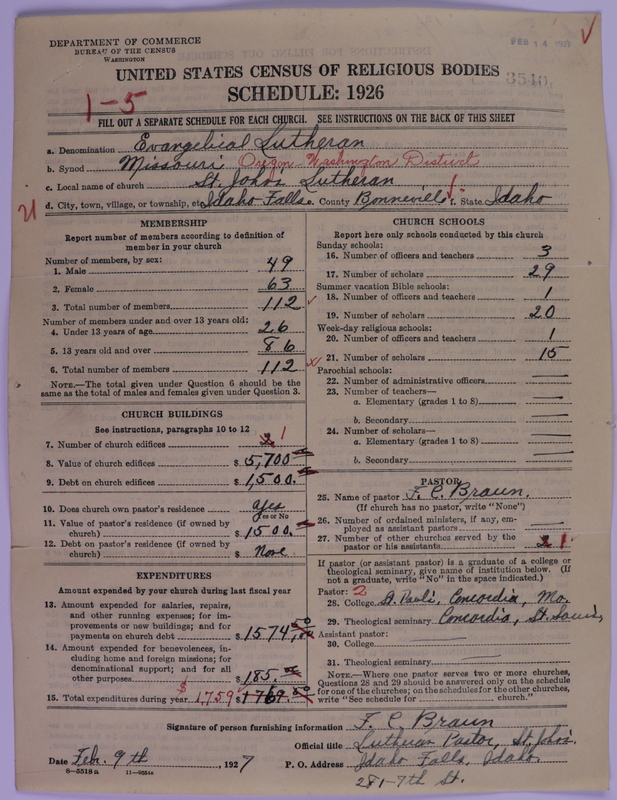 DEPARTMENT OF COMMERCE
BUREAU OF THE CENSUS
WASHINGTON
FEB 14 1927
UNITED STATES CENSUS OF RELIGIOUS BODIES
3540
SCHEDULE: 1926
1-5
FILL OUT A SEPARATE SCHEDULE FOR EACH CHURCH. SEE INSTRUCTIONS ON THE BACK OF THIS SHEET
a. Denomination Evangelical Lutheran
b. Synod Missouri Oregon-Washington District
c. Local name of church St. John's Lutheran
d. City, town, village, or township, etc. Idaho Falls e. County Bonneville f. State Idaho
MEMBERSHIP
Report number of members according to definition of
member in your church
Number of members, by sex:
1. Male 49
2. Female 63
3. Total number of members 112
Number of members under and over 13 years old:
4. Under 13 years of age 26
5. 13 years old and over 86
6. Total number of members 112
NOTE.—The total given under Question 6 should be the
same as the total of males and females given under Question 3.
CHURCH BUILDINGS
See instructions, paragraphs 10 to 12
7. Number of church edifices 1
8. Value of church edifices $ 5,700
9. Debt on church edifices $ 1,500
10. Does church own pastor's residence yes
Yes or No
11. Value of pastor's residence (if owned by
church) $ 1500
12. Debt on pastor's residence (if owned by
church) $ None
EXPENDITURES
Amount expended by your church during last fiscal year
13. Amount expended for salaries, repairs,
and other running expenses; for im-
provements or new buildings; and for
payments on church debt $ 1574
14. Amount expended for benevolences, in-
cluding home and foreign missions; for
denominational support; and for all
other purposes $ 185
15. Total expenditures during year $ 1759
CHURCH SCHOOLS
Report here only schools conducted by this church
Sunday schools:
16. Number of officers and teachers 3
17. Number of scholars 29
Summer vacation Bible schools:
18. Number of officers and teachers 1
19. Number of scholars 20
Week-day religious schools:
20. Number of officers and teachers 1
21. Number of scholars 15
Parochial schools:
22. Number of administrative officers
23. Number of teachers—
a. Elementary (grades 1 to 8)
b. Secondary
24. Number of scholars—
a. Elementary (grades 1 to 8)
b. Secondary
PASTOR
25. Name of pastor F. C. Braun.
(If church has no pastor, write "None")
26. Number of ordained ministers, if any, em-
ployed as assistant pastors
27. Number of other churches served by the
pastor or his assistants 1
If pastor (or assistant pastor) is a graduate of a college or
theological seminary, give name of institution below. (If
not a graduate, write "No" in the space indicated.)
Pastor: 2
28. College St. Paul's, Concordia, Mo.
29. Theological seminary Concordia, St. Louis,
Assistant pastor:
30. College
31. Theological seminary
NOTE.—Where one pastor serves two or more churches,
Questions 28 and 29 should be answered only on the schedule
for one of the churches; on the schedules for the other churches,
write "See schedule for church."
Signature of person furnishing information F. C. Braun
Official title Lutheran Pastor, St. John's
Date Feb. 9th, 1927 P. O. Address Idaho Falls, Idaho,
8-5518a 281-7th St.